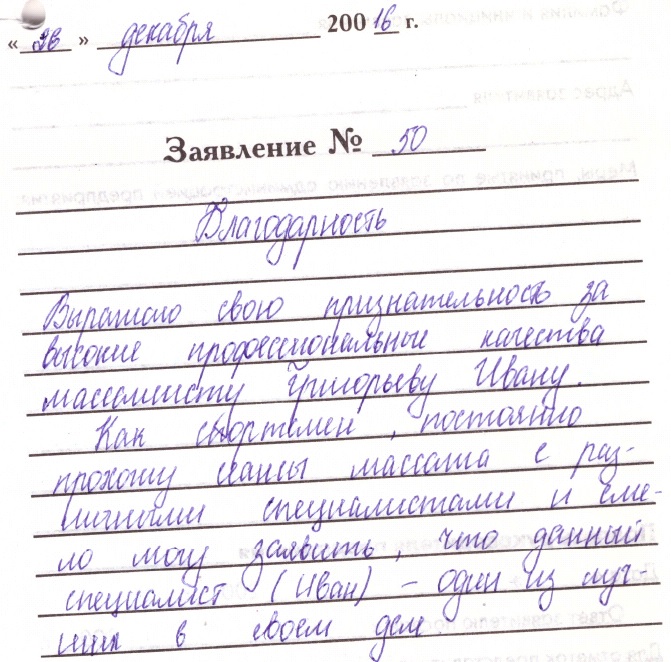 « 26 » декабря 200 16 г.
Заявление № 50
Благодарность
Выражаю свою признательность за
высокие профессиональные качества
массажисту Григорьеву Ивану.
Как спортсмен, постоянно
прохожу сеансы массажа с раз-
личными специалистами и сме-
ло могу заявить, что данный
специалист (Иван) – один из луч-
ших в своем деле